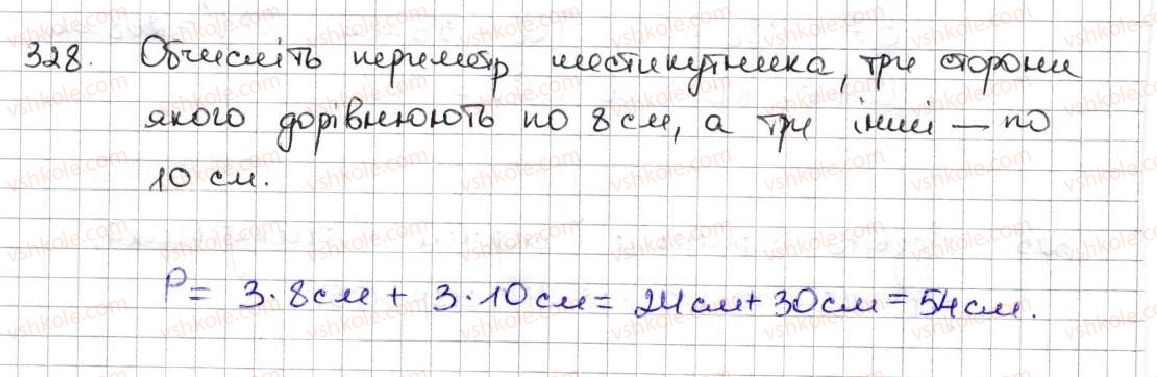 328. Обчисліть периметр шестикутника, три сторони
якого дорівнюють по 8 см, а три інші — по
10 см.
P = 3 · 8 см + 3 · 10 см = 24 см + 30 см = 54 см.